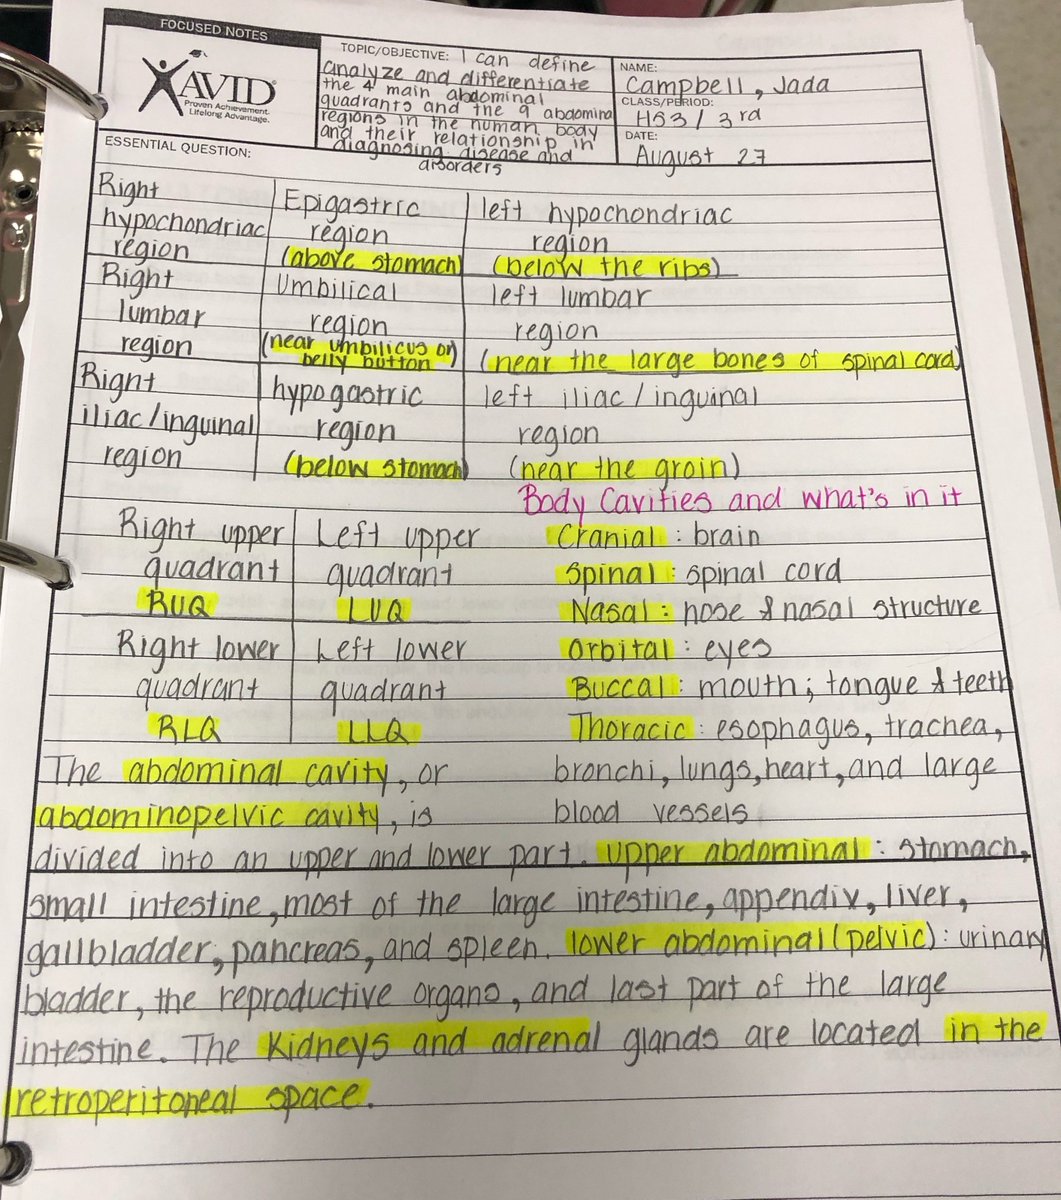 FOCUSED NOTES
AVID®
Proven Achievement.
Lifelong Advantage.
TOPIC/OBJECTIVE: I can define
analyze and differentiate
the 4 main abdominal
quadrants and the 9 abdominal
regions in the human body
and their relationship in
diagnosing disease and
disorders
NAME:
Campbell, Jada
CLASS/PERIOD:
HS3 / 3rd
DATE:
August 27
ESSENTIAL QUESTION:
Right
hypochondriac
region
Epigastric
region
(above stomach)
left hypochondriac
region
(below the ribs)
Right
lumbar
region
Umbilical
region
(near umbilicus or)
belly button
left lumbar
region
(near the large bones of spinal cord)
Right
iliac/inguinal
region
hypogastric
region
(below stomach)
left iliac/inguinal
region
(near the groin)
Body Cavities and what's in it
Right upper
quadrant
RUQ
Left upper
quadrant
LUQ
Right lower
quadrant
RLQ
Left lower
quadrant
LLQ
Cranial: brain
Spinal: spinal cord
Nasal: nose & nasal structure
Orbital: eyes
Buccal: mouth; tongue & teeth
Thoracic: esophagus, trachea,
bronchi, lungs, heart, and large
blood vessels
The abdominal cavity, or
abdominopelvic cavity, is
divided into an upper and lower part. upper abdominal: stomach,
small intestine, most of the large intestine, appendix, liver,
gallbladder, pancreas, and spleen. lower abdominal (pelvic): urinary
bladder, the reproductive organs, and last part of the large
intestine. The Kidneys and adrenal glands are located in the
retroperitoneal space.